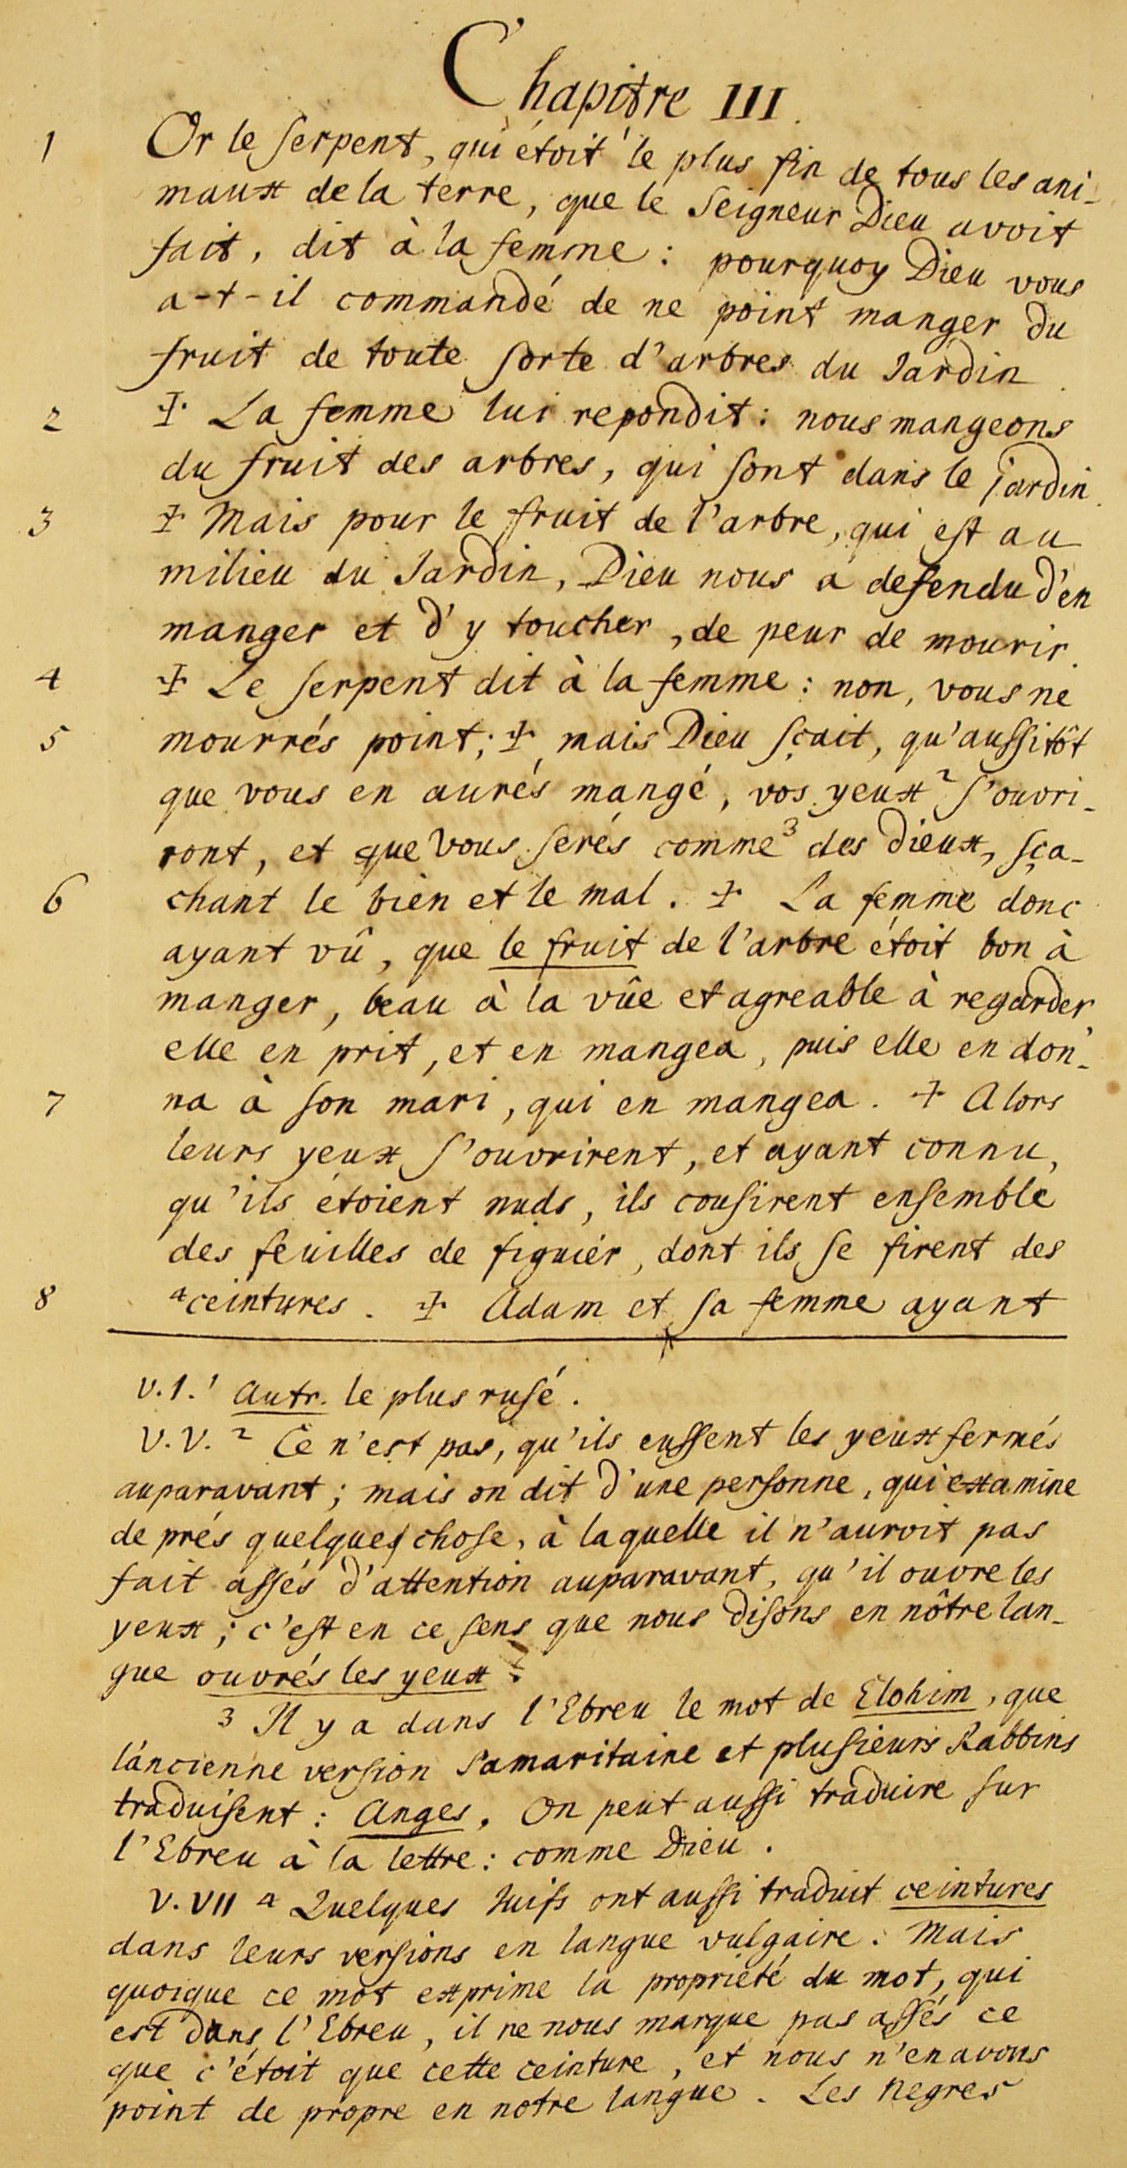 Chapitre III.
1 Or le serpent, qui étoit ¹ le plus fin de tous les ani-
maux de la terre, que le Seigneur Dieu avoit
fait, dit à la femme : pourquoy Dieu vous
a-t-il commandé de ne point manger du
fruit de toute sorte d'arbres du Jardin.
2 ‡ La femme lui repondit : nous mangeons
du fruit des arbres, qui sont dans le jardin.
3 ‡ Mais pour le fruit de l'arbre, qui est au
milieu du Jardin, Dieu nous a defendu d'en
manger et d'y toucher, de peur de mourir.
4 ‡ Le serpent dit à la femme : non, vous ne
5 mourrés point; ‡ mais Dieu sçait, qu'aussitôt
que vous en aurés mangé, vos yeux ² s'ouvri-
ront, et que vous serés comme ³ des dieux, sça-
6 chant le bien et le mal. ‡ La femme donc
ayant vû, que le fruit de l'arbre étoit bon à
manger, beau à la vûe et agreable à regarder,
elle en prit, et en mangea, puis elle en don-
7 na à son mari, qui en mangea. ‡ Alors
leurs yeux s'ouvrirent, et ayant connu,
qu'ils étoient nuds, ils cousirent ensemble
des feuilles de figuier, dont ils se firent des
8 ⁴ ceintures. ‡ Adam et sa femme ayant
v. 1. ¹ Autr. le plus rusé.
V. V. ² Ce n'est pas, qu'ils eussent les yeux fermés
auparavant; mais on dit d'une personne, qui examine
de prés quelque chose, à laquelle il n'auroit pas
fait assés d'attention auparavant, qu'il ouvre les
yeux; c'est en ce sens que nous disons en nôtre lan-
gue ouvrés les yeux.
³ Il y a dans l'Ebreu le mot de Elohim, que
l'ancienne version Samaritaine et plusieurs Rabbins
traduisent : Anges. On peut aussi traduire sur
l'Ebreu à la lettre : comme Dieu.
V. VII ⁴ Quelques Juifs ont aussi traduit ceintures
dans leurs versions en langue vulgaire. Mais
quoique ce mot exprime la proprieté du mot, qui
est dans l'Ebreu, il ne nous marque pas assés ce
que c'étoit que cette ceinture, et nous n'en avons
point de propre en notre langue. Les Negres